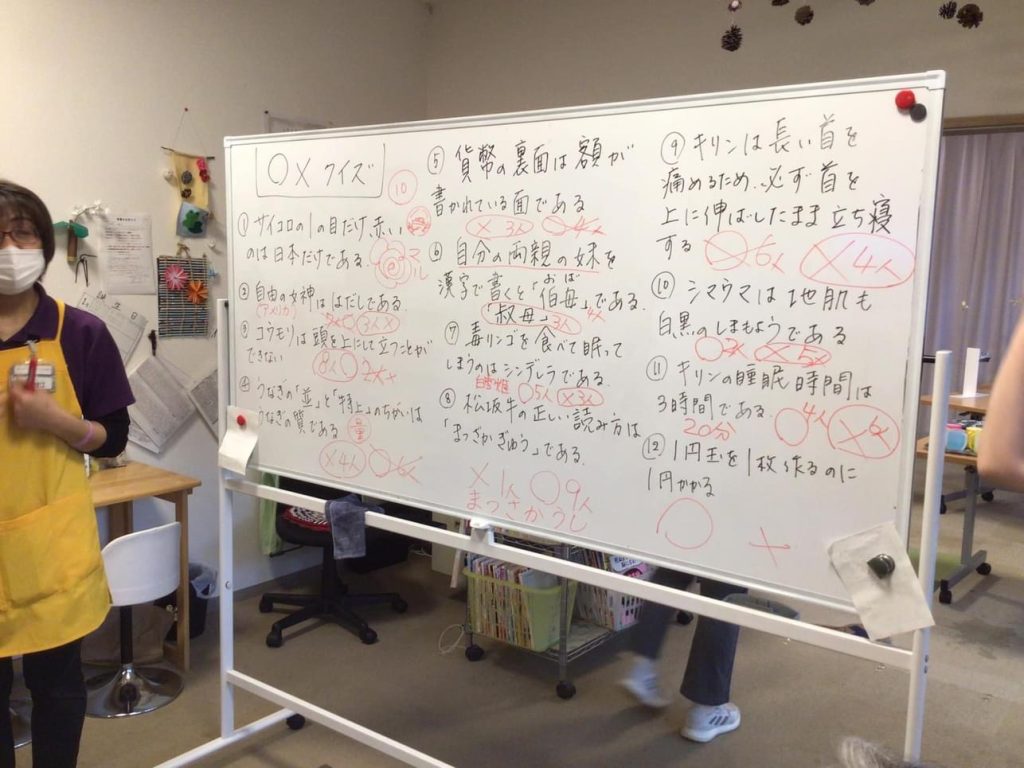 ○×クイズ
⑩
①サイコロの1の目だけ、赤い
のは日本だけである。
マル
②自由の女神ははだしである
(アメリカ)
③コウモリは頭を上にして立つことが
できない
8人○ 2人×
④うなぎの「並」と「特上」のちがいは
うなぎの質である
量
×4人 ○6人
⑤貨幣の裏面は額が
書かれている面である
×3人 ○4人
⑥自分の両親の妹を
おば
漢字で書くと「伯母」である。
「叔母」3人 4人
⑦毒リンゴを食べて眠って
しまうのはシンデレラである。
白雪姫 ○5人 ×3人
⑧松坂牛の正しい読み方は
「まっざかぎゅう」である。
×1人 ○9人
まつさかうし
⑨キリンは長い首を
痛めるため、必ず首を
上に伸ばしたまま立ち寝
する ○6人 ×4人
⑩シマウマは地肌も
白黒のしまもようである
⑪キリンの睡眠時間は
3時間である。
20分
○4人 ×6人
⑫1円玉を1枚作るのに
1円かかる
○ ×